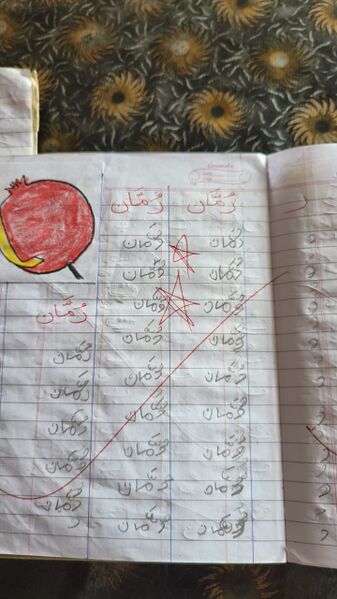 ر رُمَّان رُمَّان
ر رُمَّان رُمَّان
ر رُمَّان رُمَّان
ر رُمَّان رُمَّان رُمَّان
ر رُمَّان رُمَّان رُمَّان
ر رُمَّان رُمَّان رُمَّان
ر رُمَّان رُمَّان رُمَّان
ر رُمَّان رُمَّان رُمَّان
ر رُمَّان رُمَّان رُمَّان
ر رُمَّان رُمَّان ر